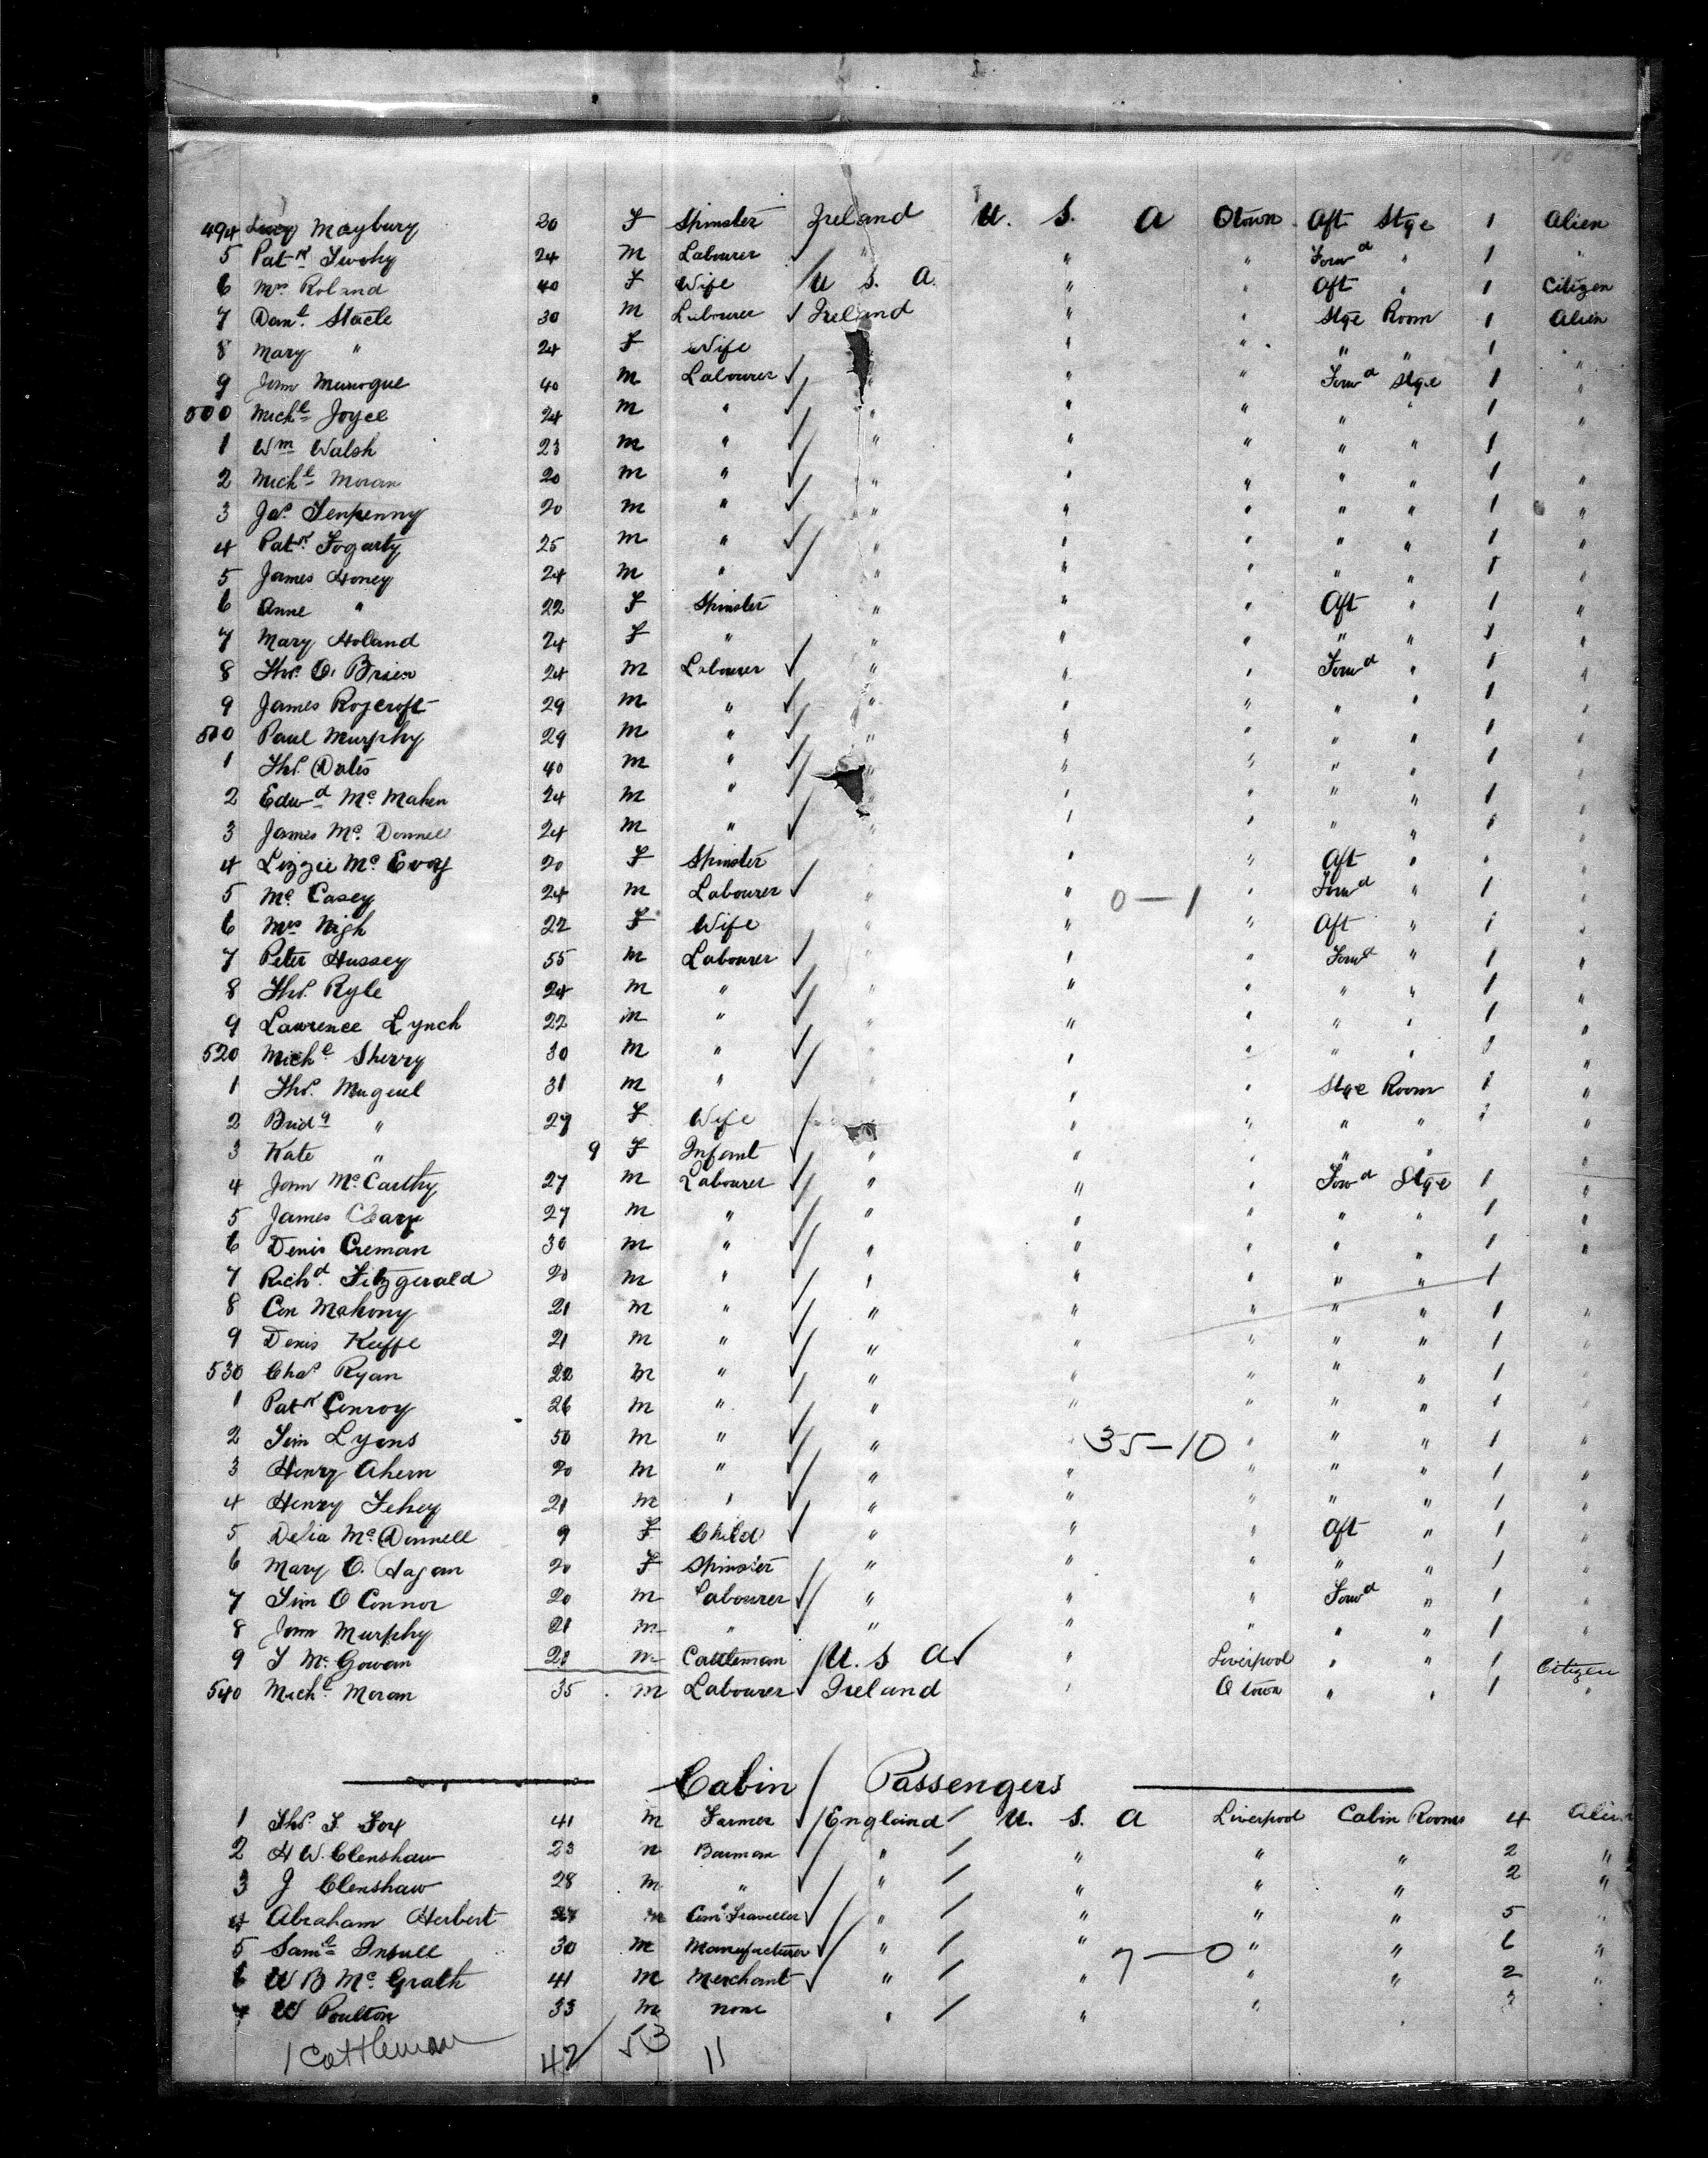 494 Lucy Maybury 20 F Spinster Ireland U. S. A Qtown Aft Stge 1 Alien
5 Patk Twohy 24 M Labourer " " " Forwd " 1 "
6 Mrs Roland 40 F Wife U S. A. " " Aft " 1 Citizen
7 Danl. Stacle 30 M Labourer Ireland " " Stge Room 1 Alien
8 Mary " 24 F Wife " " " " 1 "
9 John Munogue 40 M Labourer " " " Forwd Stge 1 "
500 Michl Joyce 24 M " " " " " " 1 "
1 Wm Walsh 23 M " " " " " " 1
2 Michl Moran 20 M " " " " " " 1 "
3 Jas Tenpenny 20 M " " " " " " 1 "
4 Patk Fogarty 25 M " " " " " " 1 "
5 James Honey 24 M " " " " " " 1 "
6 Anne " 22 F Spinster " " " Aft " 1 "
7 Mary Holand 24 F " " " " " " 1 "
8 Thos. O. Brien 24 M Labourer " " " Forwd " 1 "
9 James Roycroft 29 M " " " " " " 1 "
510 Paul Murphy 29 M " " " " " " 1 "
1 Thos. 40 M " " " " " " 1 "
2 Edwd Mc Mahen 24 M " " " " " 1 "
3 James Mc. Donnell 24 M " " " " " " 1 "
4 Lizzie Mc Evoy 20 F Spinster " " Aft " " "
5 Mc Casey 24 M Labourer " " 0-1 " Forwd " 1 "
6 Mrs Nigh 22 F Wife " " " Aft " 1 "
7 Peter Hussey 55 M Labourer " " " Forwd " 1 "
8 Thos. Ryle 24 M " " " " " " 1 "
9 Lawrence Lynch 22 M " " " " " " 1 "
520 Michl Sherry 30 M " " " " " " 1 "
1 Thos. 31 M " " " " Stge Room 1 "
2 Bridt " 27 F Wife " " " " 1 "
3 Kate " 9 F Infant " " " " " "
4 John Mc Carthy 27 M Labourer " " " Forwd Stge 1 "
5 James Cleary 27 M " " " " " " 1 "
6 Denis Creman 30 M " " " " " " 1 "
7 Richd. Fitzgerald 20 M " " " " " " 1
8 Con Mahony 21 M " " " " " " 1 "
9 Denis Keeffe 21 M " " " " " " 1 "
530 Chas Ryan 22 M " " " " " " 1 "
1 Patk Conroy 26 M " " " " " " 1 "
2 Tim Lyons 50 M " " " 35-10 " " " 1 "
3 Henry Ahern 20 M " " " " " " 1 "
4 Henry Fehey 21 M " " " " " " 1 "
5 Delia Mc Donnell 9 F Child " " " Aft " 1 "
6 Mary O. Hagan 20 F Spinster " " " " " 1 "
7 Tim O Connor 20 M Labourer " " " Forwd " 1 "
8 John Murphy 21 M " " " " " " 1 "
9 T Mc. Gowan 28 M Cattleman U. S A " Liverpool " " 1 Citizen
540 Michl Moran 35 M Labourer Ireland " Q town " " 1 "
Cabin Passengers
1 Thos. F. Fox 41 M Farmer England U. S. A Liverpool Cabin Rooms 4 Alien
2 H W. Clenshaw 23 M Barman " " " " 2 "
3 J Clenshaw 28 M " " " " " 2 "
4 Abraham Herbert M Coml Traveller " " " " 5 "
5 Saml Insull 30 M Manufacturer " " 7-0 " " 6 "
6 W B Mc Grath 41 M Merchant " " " " 2 "
7 W Poulton 33 M none " " " " 3
1 Cattleman 42 53 11